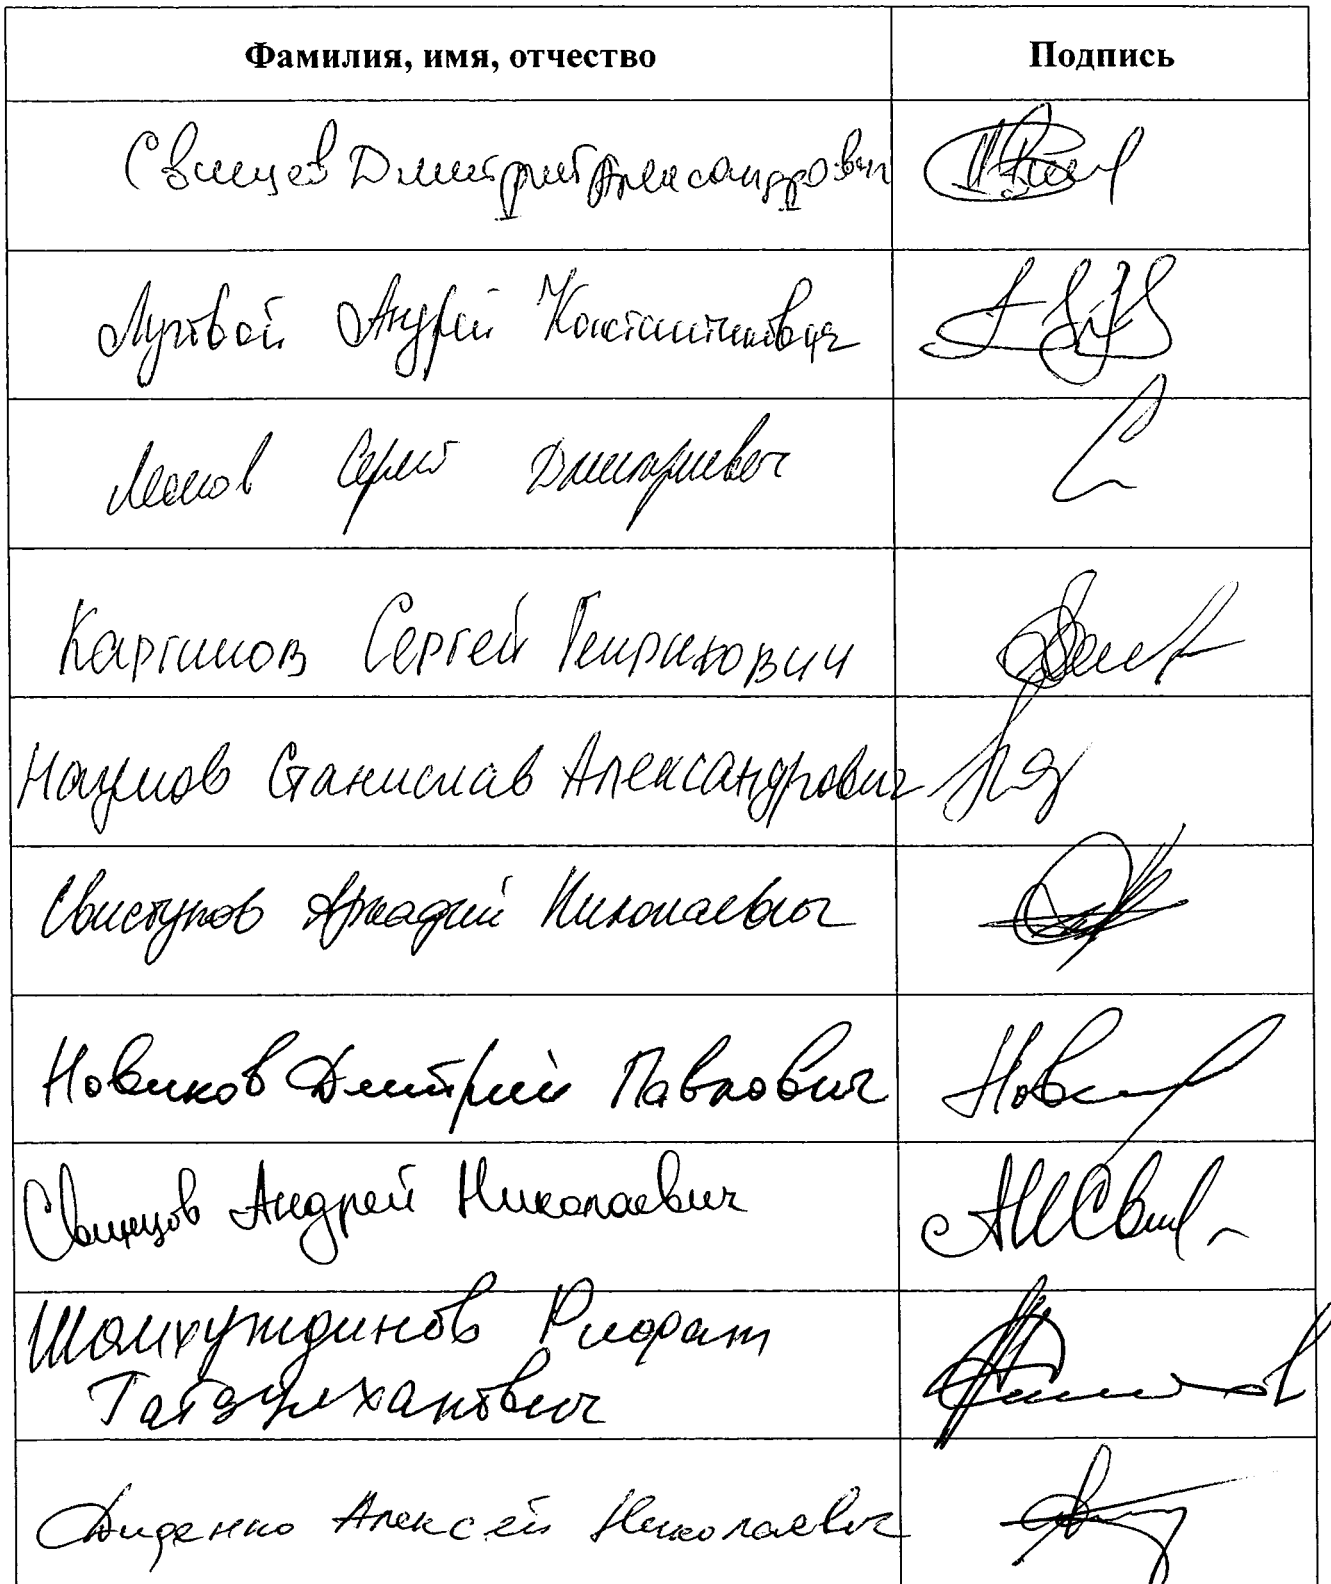 Фамилия, имя, отчество Подпись
Свинцов Дмитрий Александрович
Луговой Андрей Константинович
Леонов Сергей Дмитриевич
Каргинов Сергей Генрихович
Наумов Станислав Александрович
Свистунов Аркадий Николаевич
Новиков Дмитрий Павлович
Свинцов Андрей Николаевич
Шайхутдинов Рифат
Диденко Алексей Николаевич